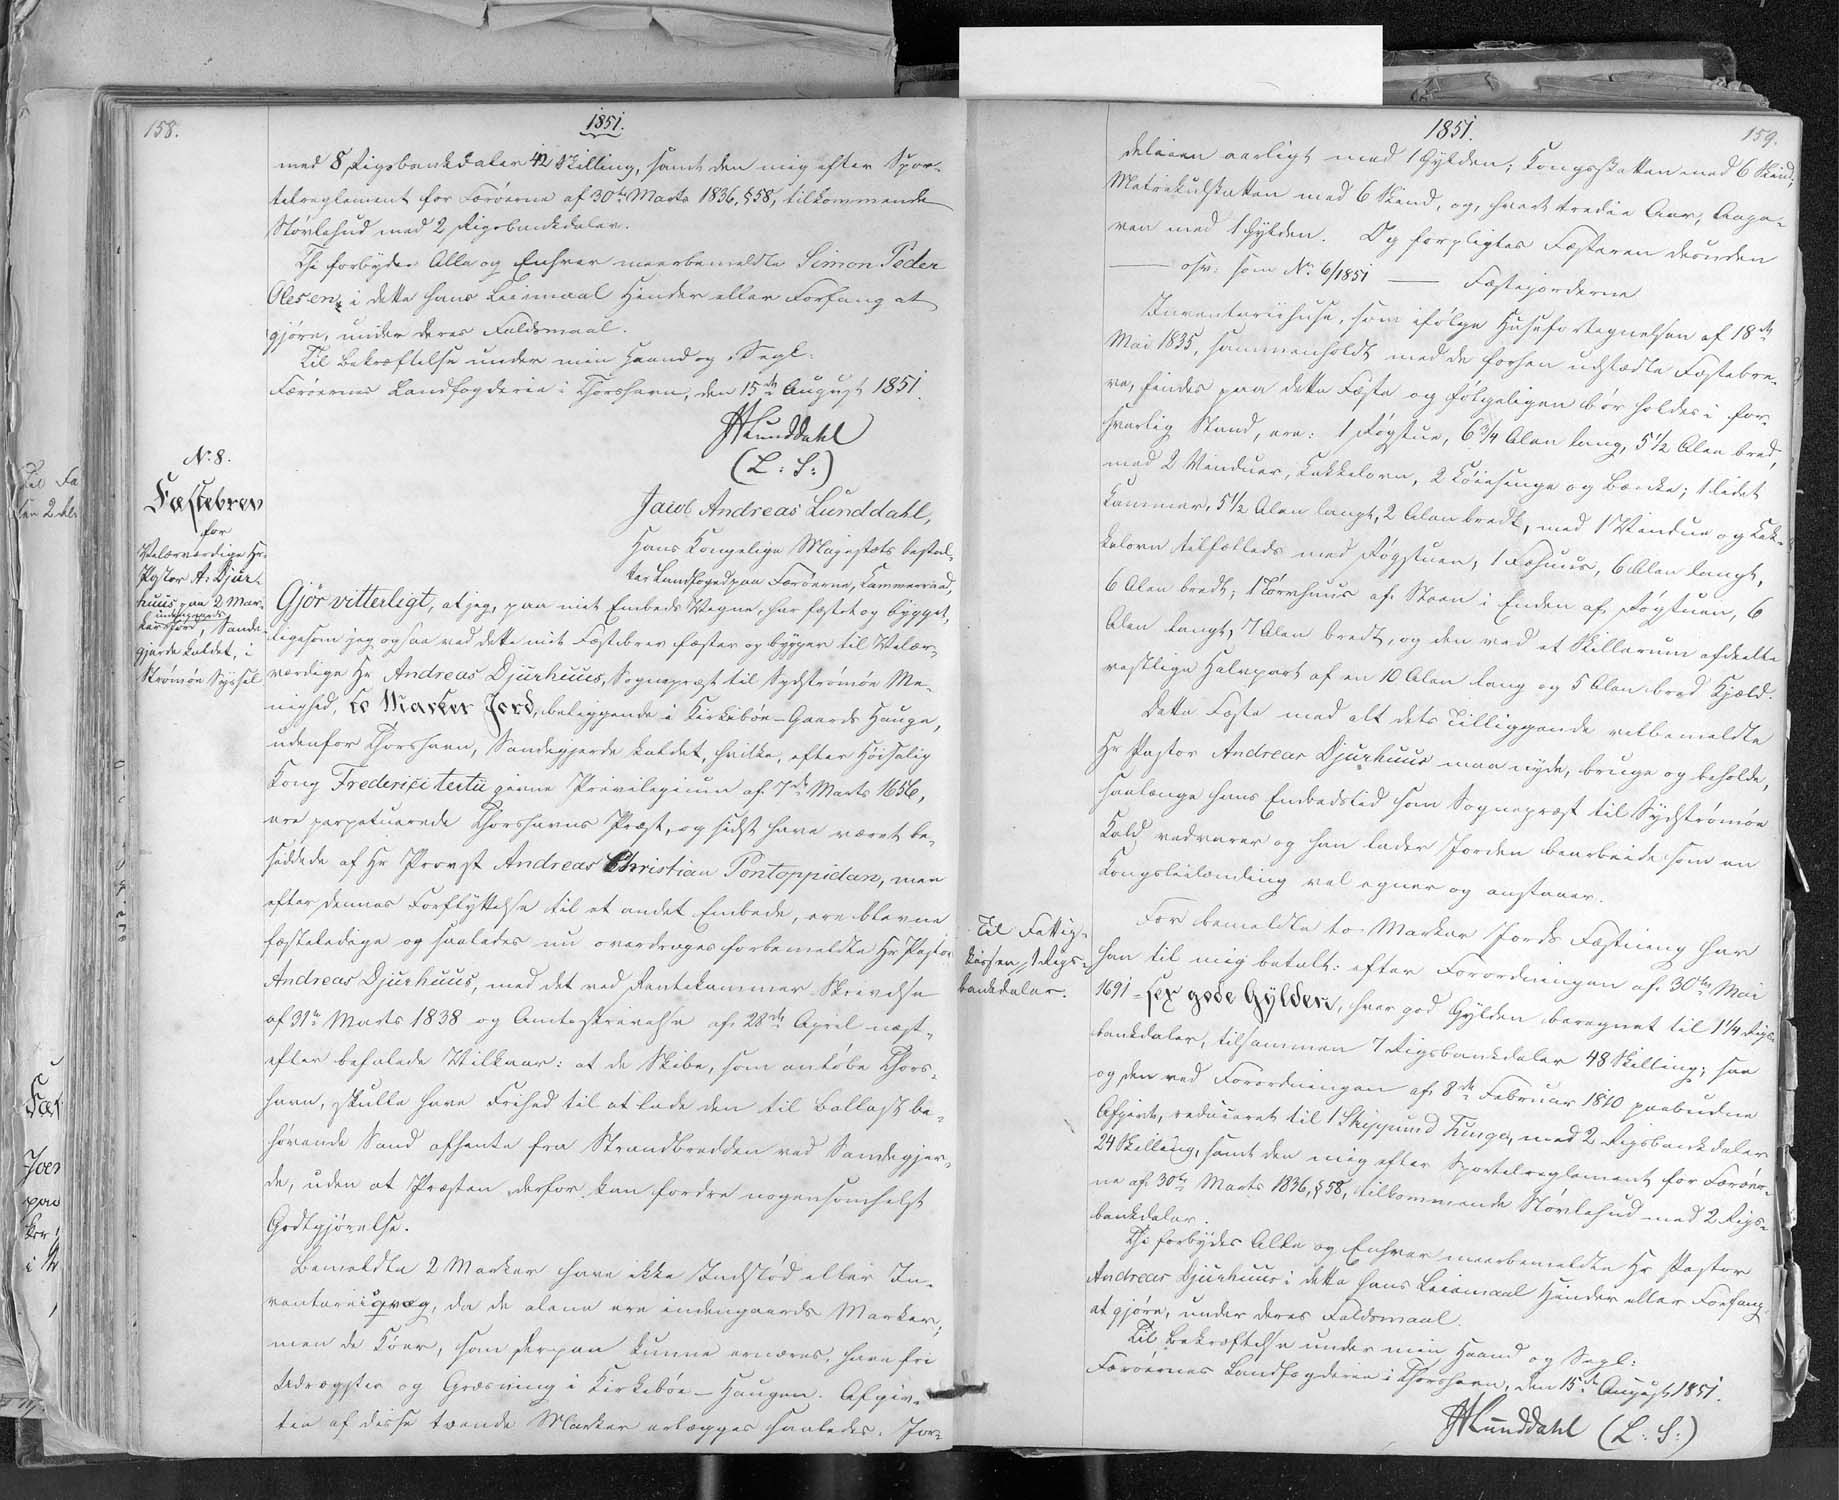 158.
1851.
med 8 Rigsbankdaler 42 Skilling, samt den mig efter Spor-
telreglement for Færöerne af 30te Marts 1836, §58, tilkommende
Stövlehud med 2 Rigsbankdaler.
Thi forbydes Alle og Enhver meerbemeldte Simon Peder
Olesen, i dette hans Leiemaal Hinder eller Forfang at
gjöre, under deres Faldsmaal.
Til Bekræftelse under min Haand og Segl:
Færöernes Landfogderie i Thorshavn, den 15de August 1851.
JALunddahl
(L: S:)
No 8.
Fæstebrev
for
Velærværdige Hr.
Pastor A: Djur-
huus paa 2 Mar-
indengaards
ker Jord, Sande-
gjerde kaldet, i
Strömöe Syssel
Jacob Andreas Lunddahl,
Hans Kongelige Majestæts bestal-
ter Landfoged paa Færöerne, Kammerraad,
Gjör vitterligt, at jeg, paa mit Embeds Vegne, har fæstet og bygget,
ligesom jeg ogsaa ved dette mit Fæstebrev fæster og bygger til Velær-
værdige Hr Andreas Djurhuus, Sognepræst til Sydströmöe Me-
nighed, to Marker Jord, beliggende i Kirkeböe-Gaards Hauge,
udenfor Thorshavn, Sandegjerde kaldet, hvilke, efter Höisalig
Kong Frederici tertii givne Privilegium af 7de Marts 1656,
ere perpetuerede Thorshavns Præst, og sidst have været be-
siddede af Hr Provst Andreas Christian Pontoppidan, men
efter dennes Forflyttelse til et andet Embede, ere blevne
fæsteledige og saaledes nu overdrages forbemeldte Hr Pastor
Andreas Djurhuus, med det ved Rentekammer Skrivelse
af 31te Marts 1838 og Amtsskrivelse af 28de April næst-
efter befalede Vilkaar: at de Skibe, som anlöbe Thors-
havn, skulle have Frihed til at lade den til Ballast be-
hörende Sand afhente fra Strandbredden ved Sandegjer-
de, uden at Præsten derfor kan fordre nogensomhelst
Godtgjörelse.
Bemeldte 2 Marker have ikke Indstöd eller In-
ventarieqvæg, da de alene ere indengaards Marker;
men de Köer, som derpaa kunne ernæres, have fri
Udregster og Græsning i Kirkeböe-Haugen. Afgif-
ten af disse tvende Marker erlægges saaledes: Jor-
1851.
159.
deleien aarligt med 1 Gylden, Kongsskatten med 6 Skind,
Matrikulskatten med 6 Skind, og, hvert tredie Aar, Aaga-
ven med 1 Gylden. Og forpligtes Fæsteren desuden
— osv: som No 6/1851 — Fæstejorderne
Inventariihuse, som ifölge Husefortegnelsen af 18de
Mai 1835, sammenholdt med de forhen udstædte Fæstebre-
ve, findes paa dette Fæste og fölgeligen bör holdes i for-
svarlig Stand, ere: 1 Rögstue, 6 3/4 Alen lang, 5 1/2 Alen bred,
med 2 Vinduer, Kakkelovn, 2 Köiesenge og Bænke; 1 lidet
Kammer, 5 1/2 Alen langt, 2 Alen bredt, med 1 Vindue og Kak-
kelovn tilfælleds med Rögstuen; 1 Fæhuus, 6 Alen langt,
6 Alen bredt; 1 Törvhuus af Steen i Enden af Rögstuen, 6
Alen langt, 7 Alen bredt, og den ved et Skillerum afdeelte
vestlige Halvpart af en 10 Alen lang og 5 Alen bred Kjæld.
Dette Fæste med alt dets Tilliggende velbemeldte
Hr Pastor Andreas Djurhuus maa nyde, bruge og beholde,
saalænge hans Embedstid som Sognepræst til Sydströmöe
Kald vedvarer og han lader Jorden bearbeide som en
Kongsleilænding vel egner og anstaaer.
For bemeldte to Marker Jords Fæstning har
Til Fattig-
kassen 1 Rigs-
bankdaler.
han til mig betalt: efter Forordningen af 30te Mai
1691 - sex gode Gylden, hver god Gylden beregnet til 1 1/4 Rigs-
bankdaler, tilsammen 7 Rigsbankdaler 48 Skilling; saa
og den ved Forordningen af 8de Februar 1810 paabudne
Afgivt, reduceret til 1 Skippund Tunge, med 2 Rigsbankdaler
24 Skilling, samt den mig efter Sportelreglement for Færöer-
ne af 30te Marts 1836, §58, tilkommende Stövlehud med 2 Rigs-
bankdaler.
Thi forbydes Alle og Enhver meerbemeldte Hr Pastor
Andreas Djurhuus i dette hans Leiemaal Hinder eller Forfang
at gjöre, under deres Faldsmaal.
Til Bekræftelse under min Haand og Segl:
Færöernes Landfogderie i Thorshavn, den 15de August 1851.
JALunddahl (L: S:)